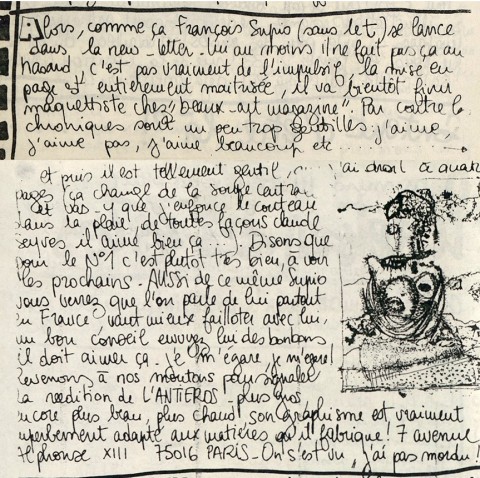 Alors, comme ça François Supio (sans le t) se lance
dans la new-letter. Lui au moins il ne fait pas ça au
hasard, c'est pas vraiment de l'impulsif, la mise en
page est entièrement maitrisée, il va bientôt finir
maquettiste chez "beaux-art magazine". Par contre le
chroniques sont un peu trop gentilles. j'aime
j'aime pas, j'aime beaucoup etc .....
et puis il est tellement gentil, ... j'ai droit à quatr
pages (ça change de la soupe
vas-y que j'enfonce le couteau
dans la plaie, de toutes façons claude
seyves il aime bien ça ...). Disons que
pour le N°1 c'est plutôt très bien, à voir
les prochains. AUSSI de ce même Supio
vous verrez que l'on parle de lui partout
en France, vaut mieux failloter avec lui,
un bon conseil envoyez lui des bonbons
il doit aimer ça. je m'égare, je m'égare!
revenons à nos moutons pour signaler
la réédition de L'ANTEROS. plus gros
encore plus beau, plus chaud son graphisme est vraiment
superbement adapté aux matières qu'il fabrique! 7 avenue
Alphonse XIII 75016 PARIS - On s'est vu, j'ai pas mordu!